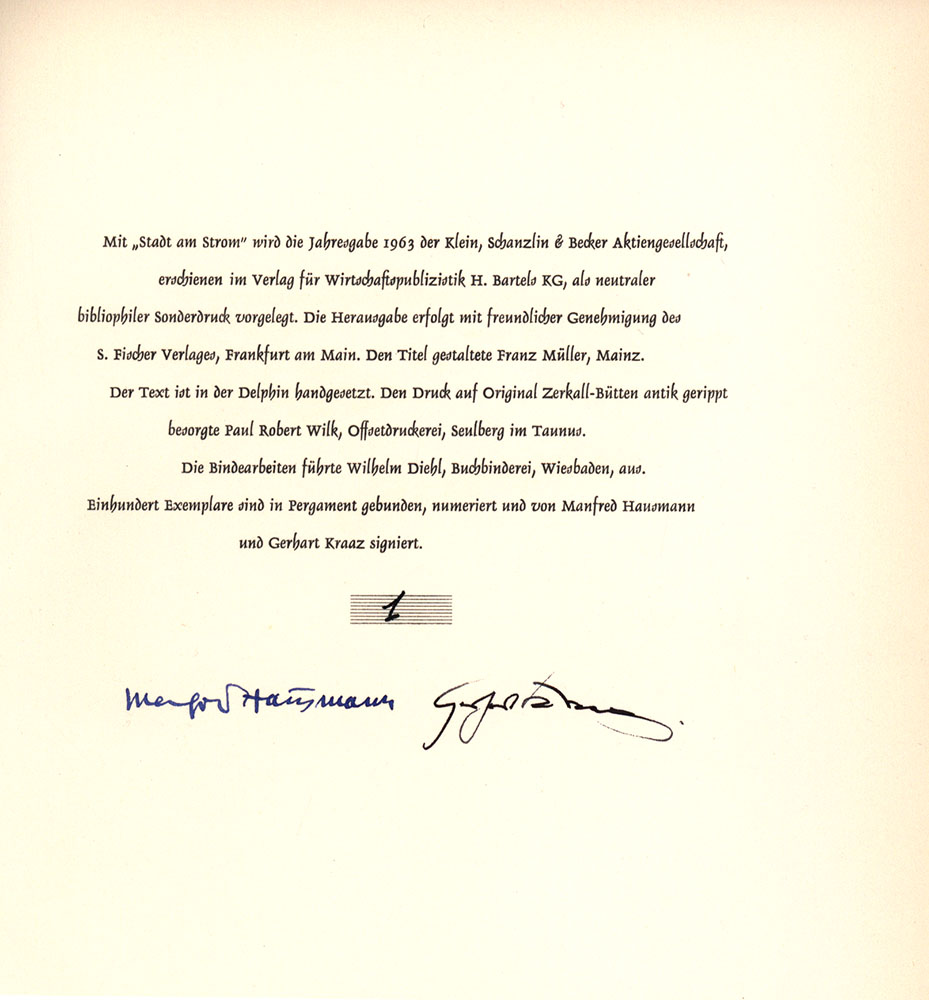 Mit „Stadt am Strom” wird die Jahresgabe 1963 der Klein, Schanzlin & Becker Aktiengesellschaft,
erschienen im Verlag für Wirtschaftspublizistik H. Bartels KG, als neutraler
bibliophiler Sonderdruck vorgelegt. Die Herausgabe erfolgt mit freundlicher Genehmigung des
S. Fischer Verlages, Frankfurt am Main. Den Titel gestaltete Franz Müller, Mainz.
Der Text ist in der Delphin handgesetzt. Den Druck auf Original Zerkall-Bütten antik gerippt
besorgte Paul Robert Wilk, Offsetdruckerei, Seulberg im Taunus.
Die Bindearbeiten führte Wilhelm Diehl, Buchbinderei, Wiesbaden, aus.
Einhundert Exemplare sind in Pergament gebunden, numeriert und von Manfred Hausmann
und Gerhart Kraaz signiert.
1
Manfred Hausmann Gerhart Kraaz